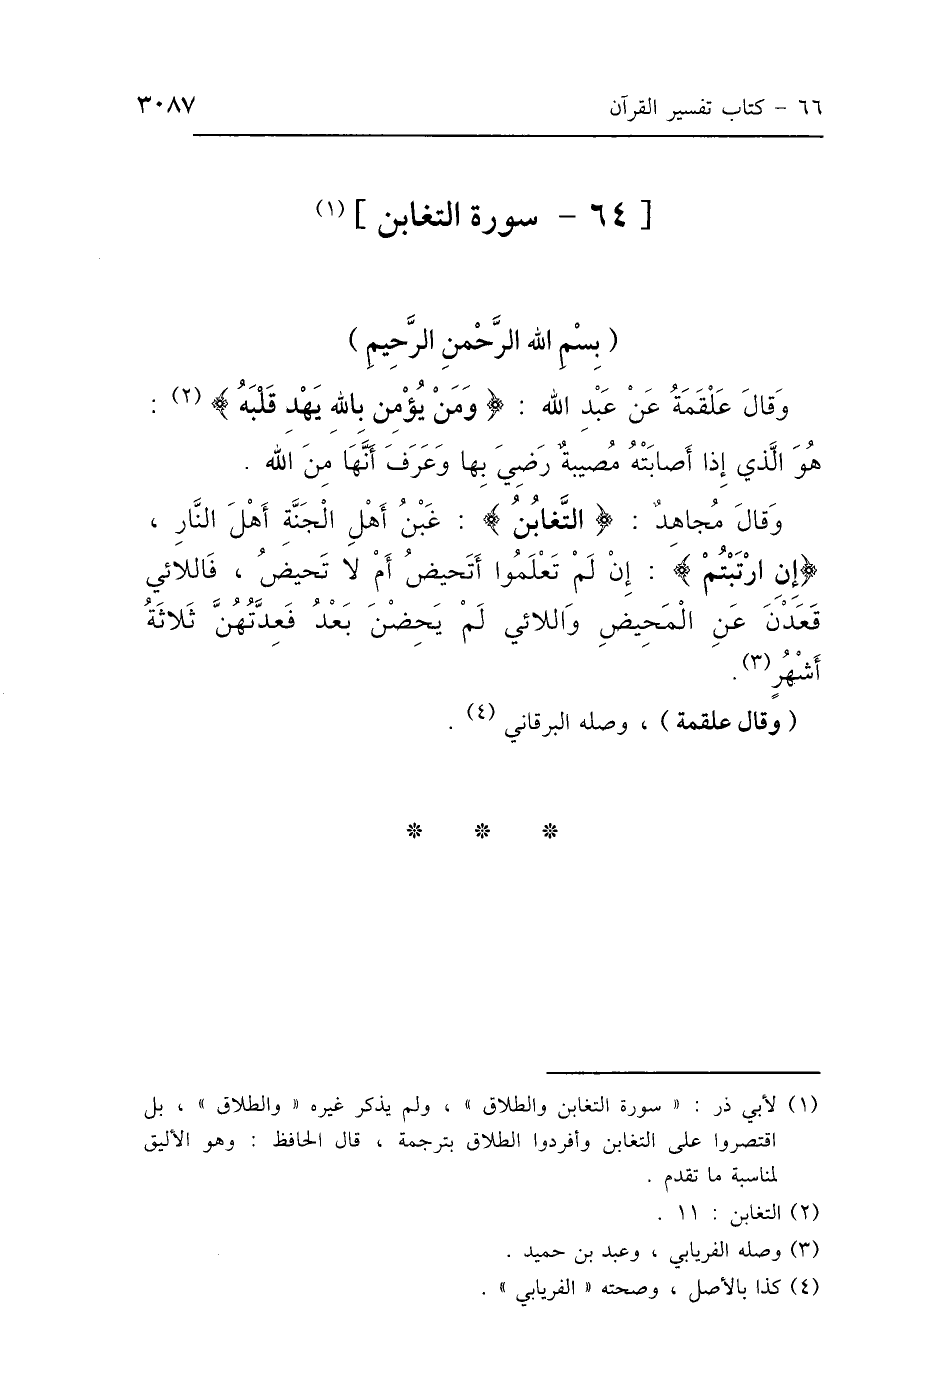 ٦٦ - كتاب تفسير القرآن ٣٠٨٧
[ ٦٤ - سورة التغابن ] (١)
( بِسْمِ الله الرَّحْمنِ الرَّحِيمِ )
وَقالَ عَلْقَمَةُ عَنْ عَبْدِ الله : ﴿ وَمَنْ يُؤْمِن بِاللهِ يَهْدِ قَلْبَهُ ﴾ (٢) :
هُوَ الَّذي إِذا أَصابَتْهُ مُصيبةٌ رَضِيَ بِها وَعَرَفَ أَنَّهَا مِنَ الله .
وَقالَ مُجاهِدٌ : ﴿ التَّغابُنُ ﴾ : غَبْنُ أَهْلِ الْجَنَّةِ أَهْلَ النَّارِ ،
﴿إِنِ ارْتَبْتُمْ ﴾ : إِنْ لَمْ تَعْلَمُوا أَتَحيضُ أَمْ لا تَحيضُ ، فَاللائي
قَعَدْنَ عَنِ الْمَحيضِ وَاللائي لَمْ يَحِضْنَ بَعْدُ فَعِدَّتُهُنَّ ثَلاثَةُ
أَشْهُرٍ (٣) .
( وقال علقمة ) ، وصله البرقاني (٤) .
* * *
(١) لأبي ذر : « سورة التغابن والطلاق » ، ولم يذكر غيره « والطلاق » ، بل
اقتصروا على التغابن وأفردوا الطلاق بترجمة ، قال الحافظ : وهو الأليق
لمناسبة ما تقدم .
(٢) التغابن : ١١ .
(٣) وصله الفريابي ، وعبد بن حميد .
(٤) كذا بالأصل ، وصحته « الفريابي » .